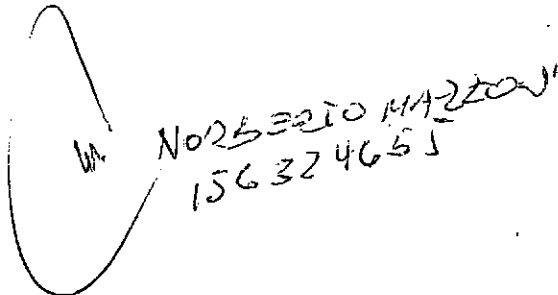 NORBERTO MAZZONI
156324655